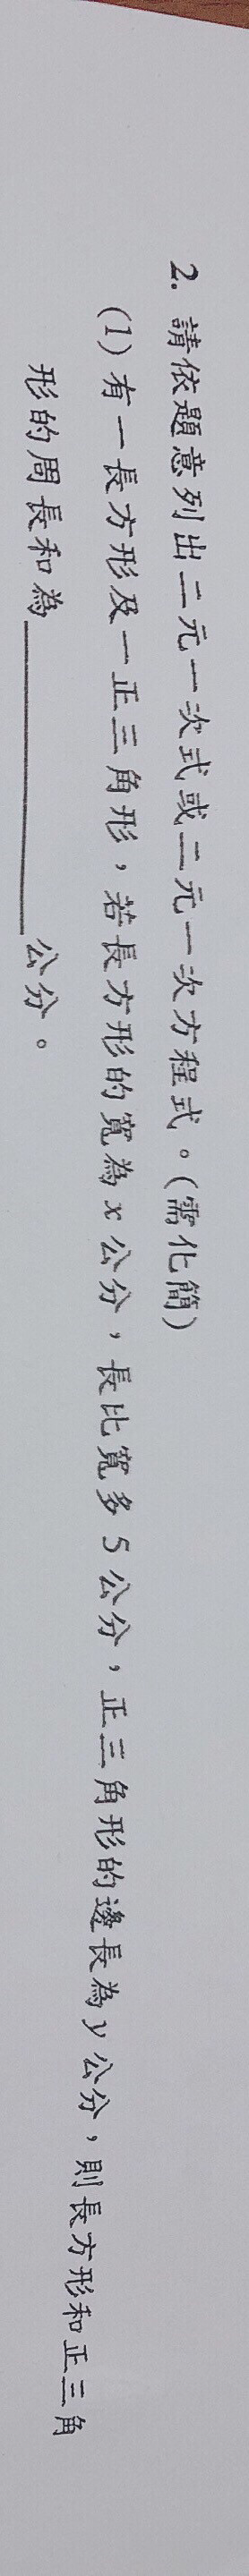 2. 請依題意列出二元一次式或二元一次方程式。(需化簡)
(1) 有一長方形及一正三角形，若長方形的寬為 x 公分，長比寬多 5 公分，正三角形的邊長為 y 公分，則長方形和正三角
形的周長和為＿＿＿＿＿＿公分。